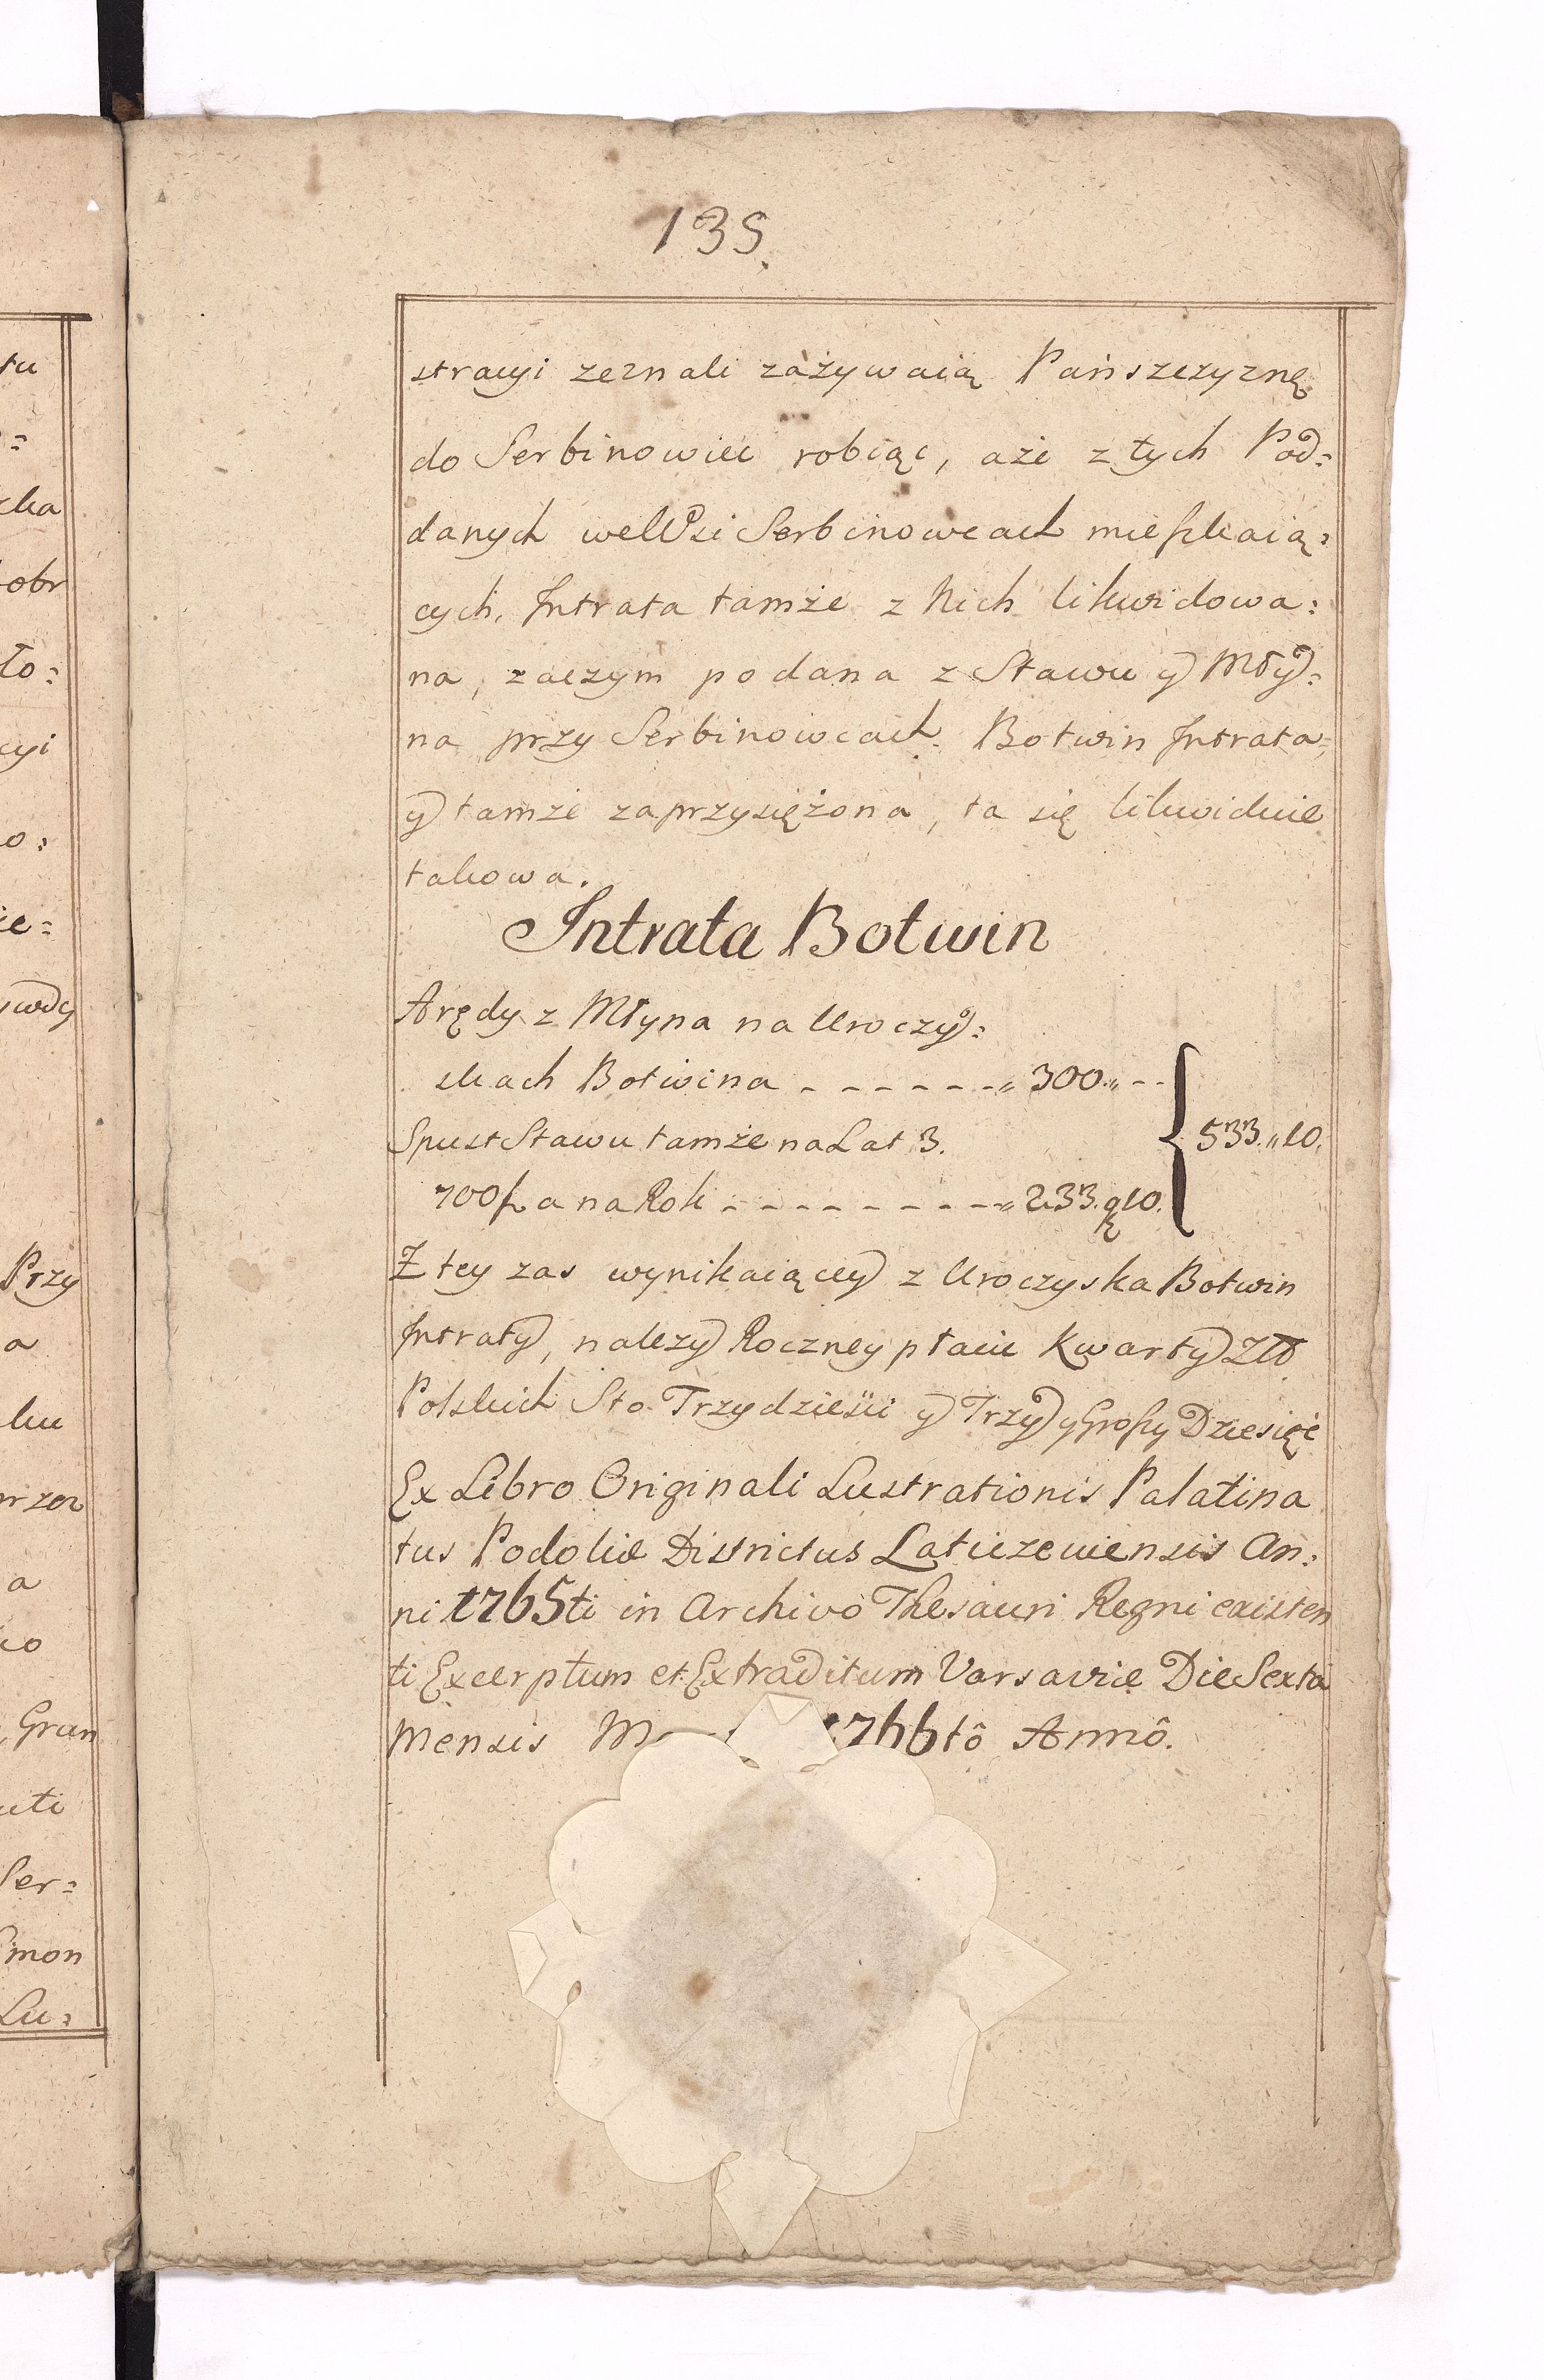 135.
stracyi zeznali zażywaią Pańszczyznę
do Serbinowiec robiąc, aże z tych Pod=
danych we Wsi Serbinowcach mieszkaią=
cych, Intrata tamże z Nich likwidowa=
na, zaczym podana z Stawu y Mły=
na przy Serbinowcach Botwin Intrata,
y tamże zaprzysiężona, ta się likwiduie
takowa.
Intrata Botwin
Arędy z Młyna na Uroczy=
skach Botwina - - - - - - - „ 300. „ - -
Spust Stawu tamże na Lat 3.
700 f. a na Rok - - - - - - - - - „ 233. g 10.
533. „ 10.
Z tey zas wynikaiącey z Uroczyska Botwin
Intraty, nalezy Roczney płacic Kwarty Zło
Polskich Sto Trzydzieści y Trzy y Groszy Dziesięć
Ex Libro Originali Lustrationis Palatina
tus Podoliæ Districtus Laticzewiensis An=
ni 1765ti in Archivo Thesauri Regni existen
ti Excerptum et Extraditum Varsaviæ Die Sexta
Mensis 1766tô Annô.
tu
ka
obr
ło:
cyi
o:
ie=
Przy
a
ku
a
co
Grun
Ser=
mon
Lu=